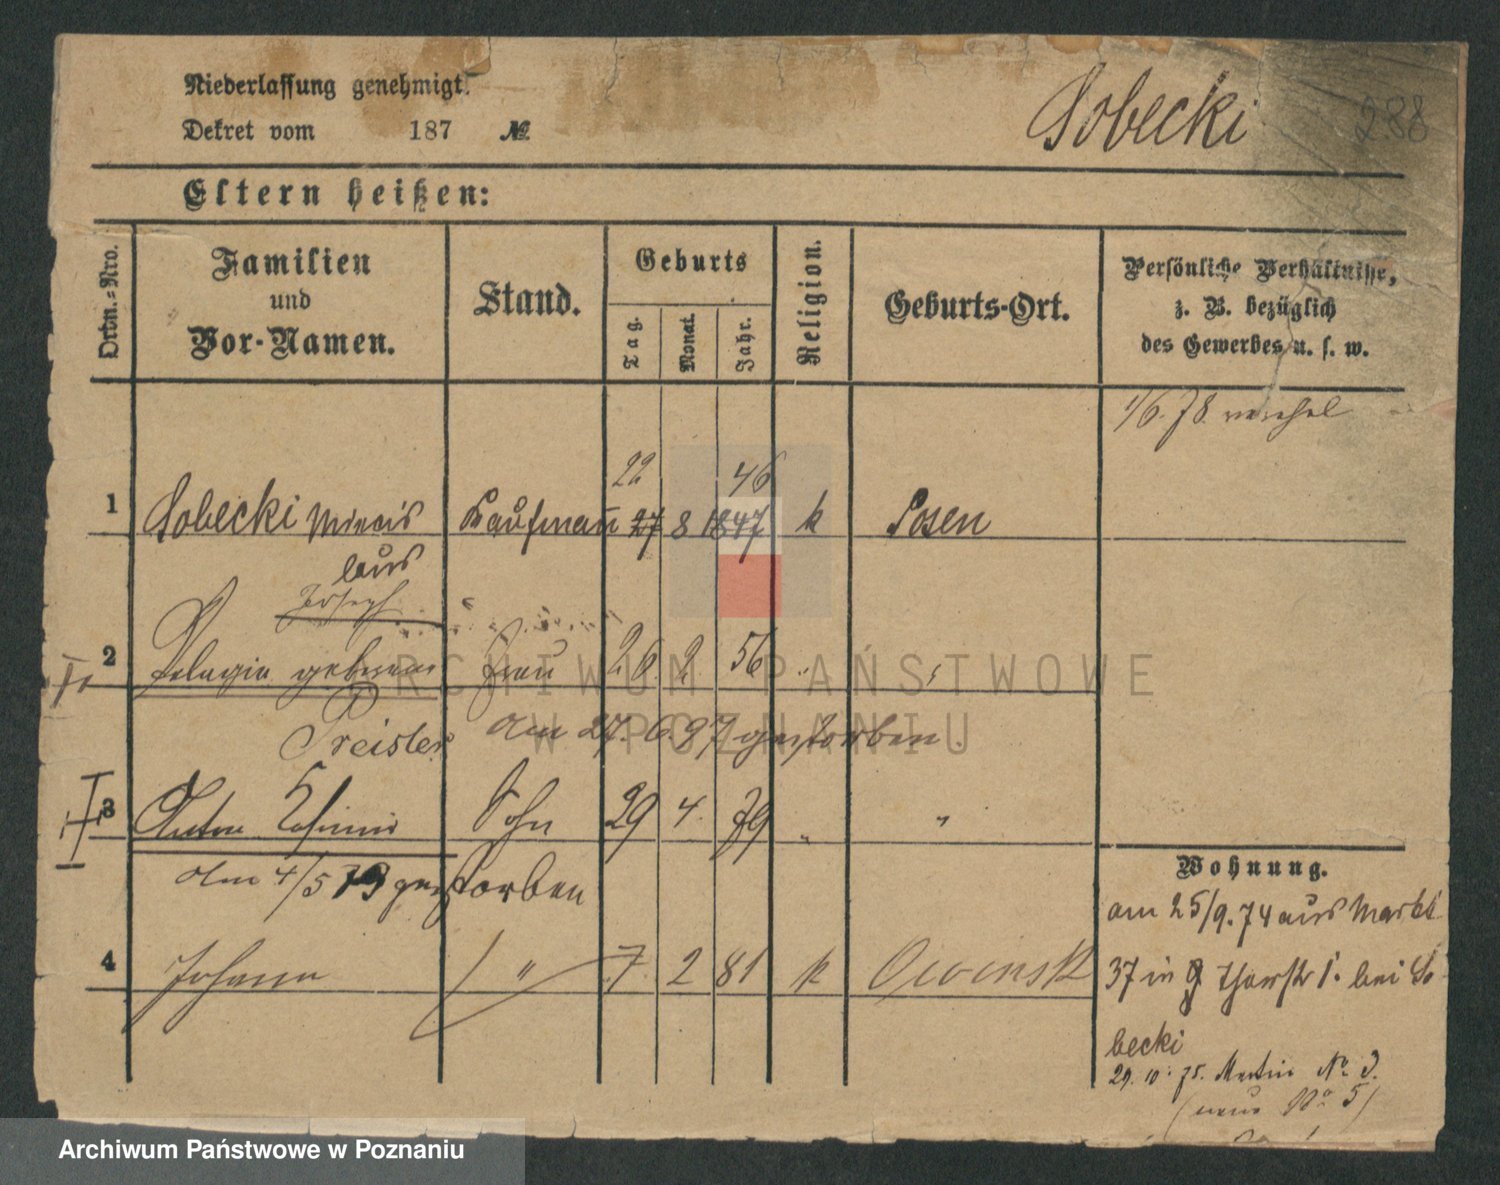 Niederlassung genehmigt.
Dekret vom 187 №
Sobecki 288
Eltern heißen:
Ordn.=Nro.
Familien
und
Vor-Namen.
Stand.
Geburts
Tag.
Monat.
Jahr.
Religion.
Geburts-Ort.
Persönliche Verhältnisse,
z. B. bezüglich
des Gewerbes u. s. w.
1/6. 78
22 46
1 Sobecki Kaufmann 27 8 1847 k Posen
laus
Joseph
2 Pelagia geborene Frau 26. 2. 56 " "
II
Preisler am 27. 6. 97 gestorben.
3 Anton Sohn 29 4. 79 " "
am 4/5 79 gestorben
4 Johann " 7. 2 81 k Owinsk
Wohnung.
am 25/9. 74 aus Markt
37 in bei So
becki
29. 10. 75. Martin No 3.
(neue No 5)
ARCHIWUM PAŃSTWOWE
W POZNANIU
Archiwum Państwowe w Poznaniu